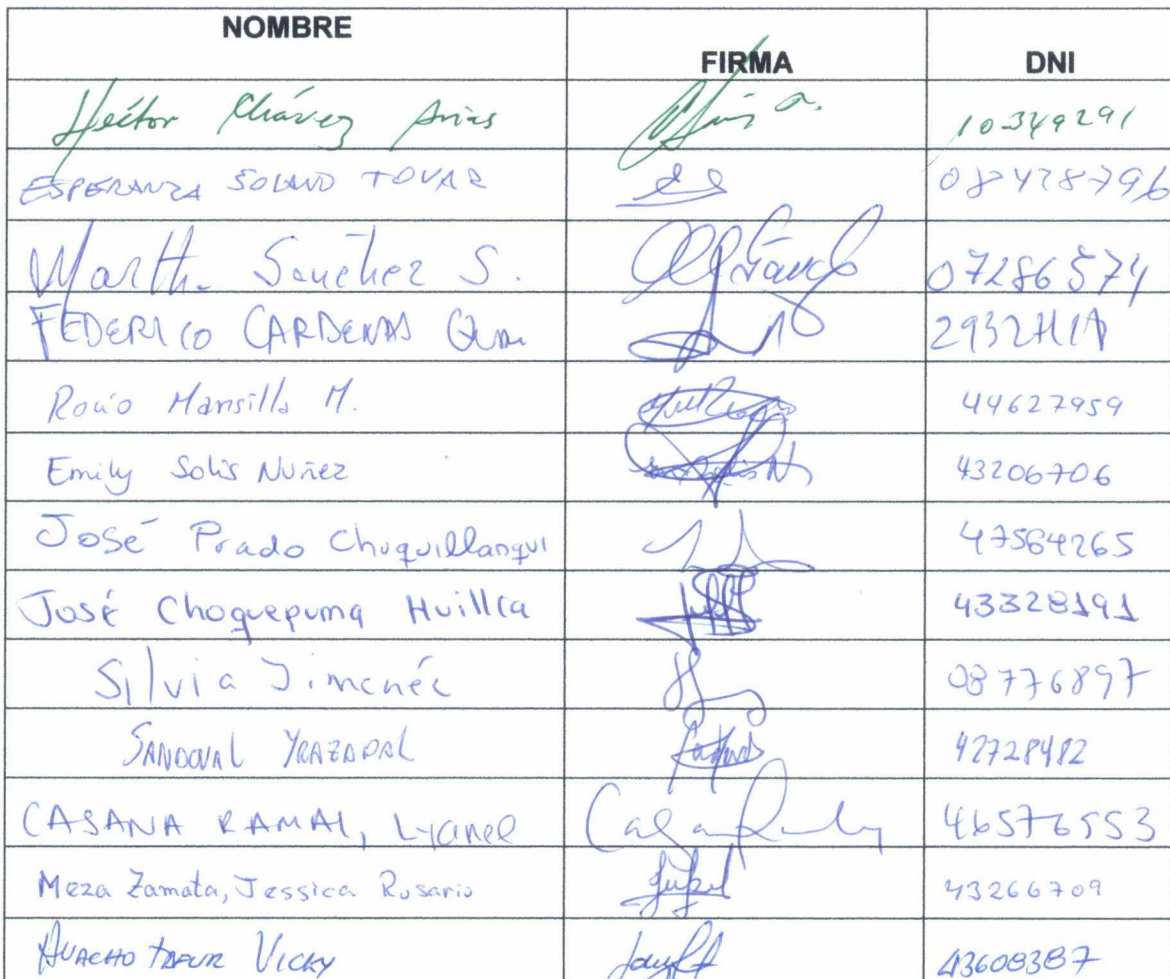 NOMBRE FIRMA DNI
Héctor Chávez Arias 10349291
ESPERANZA SOLANO TOVAR 08428796
Martha Sanchez S. 07286574
FEDERICO CARDENAS
Rocio Mansilla M. 44627959
Emily Solis Nuñez 43206706
José Prado Chuquillanqui 47564265
José Choquepuma Huillca 43328191
Silvia Jimenéz 08776897
SANDOVAL 42728482
CASANA RAMAL, Lyanel 46576553
Meza Zamata, Jessica Rosario 43266709
HUACHO TAFUR VICKY 43608387